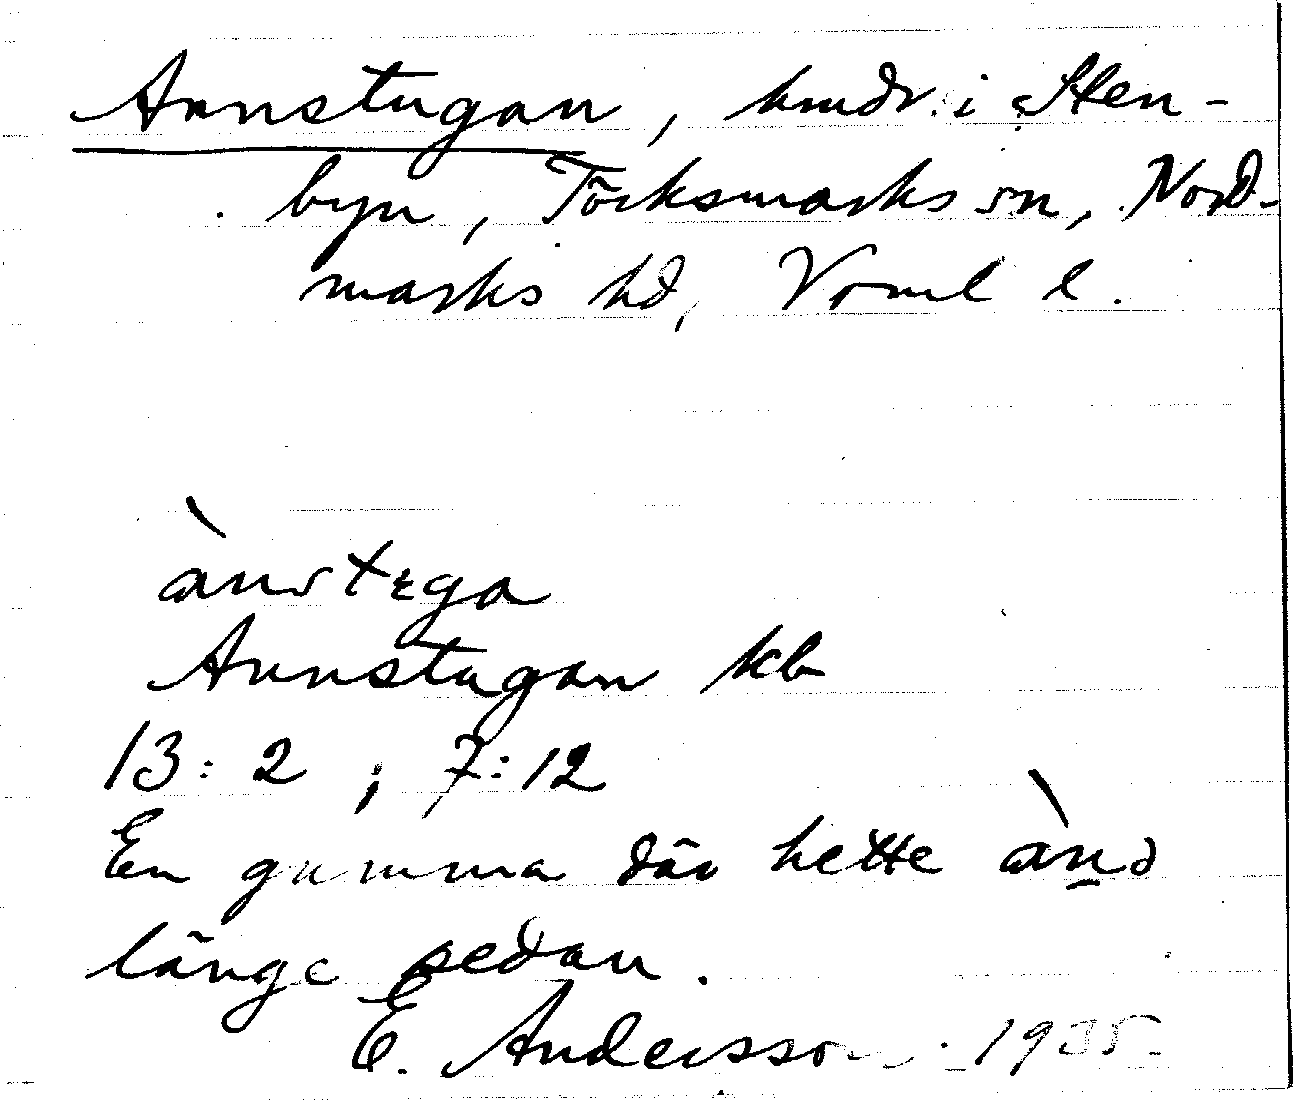 Annstugan, hmdr. i Sten-
byn, Töcksmarks sn, Nord-
marks hd, Vrml l.
ànstɛga
Annstugan kb
13:2 ; 7:12
En gumma där hette àn̲ə
länge sedan.
E. Andersson 1935